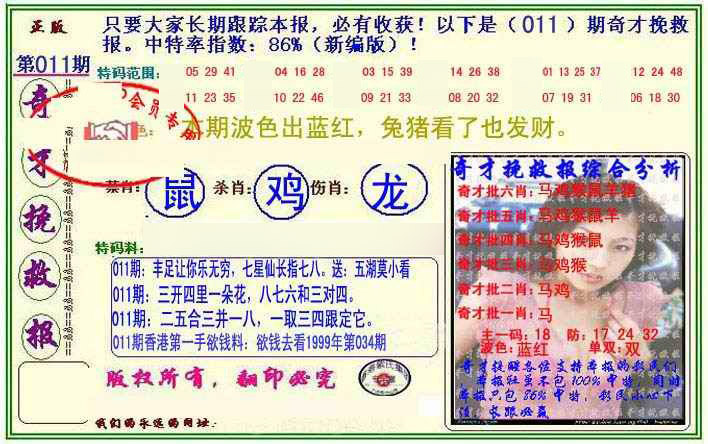 正版
只要大家长期跟踪本报，必有收获！以下是（011）期奇才挽救
报。中特率指数：86%（新编版）！
第011期
奇
才
挽
救
报
特码范围：
05 29 41  04 16 28  03 15 39  14 26 38  01 13 25 37  12 24 48
11 23 35  10 22 46  09 21 33  08 20 32  07 19 31  06 18 30
会员专
色：本期波色出蓝红，兔猪看了也发财。
禁肖：鼠 杀肖：鸡 伤肖：龙
特码料：
011期：丰足让你乐无穷，七星仙长指七八。送：五湖莫小看
011期：三开四里一朵花，八七六和三对四。
011期：二五合三并一八，一取三四跟定它。
011期香港第一手欲钱料：欲钱去看1999年第034期
版权所有，翻印必究
我们的永远的网址：
奇才挽救报综合分析
奇才批六肖：马鸡猴鼠羊猪
奇才批五肖：马鸡猴鼠羊
奇才批四肖：马鸡猴鼠
奇才批三肖：马鸡猴
奇才批二肖：马鸡
奇才批一肖：马
主一码：18 防：17 24 32
波色：蓝红 单双：双
本报只包86%中特，彩民小心下